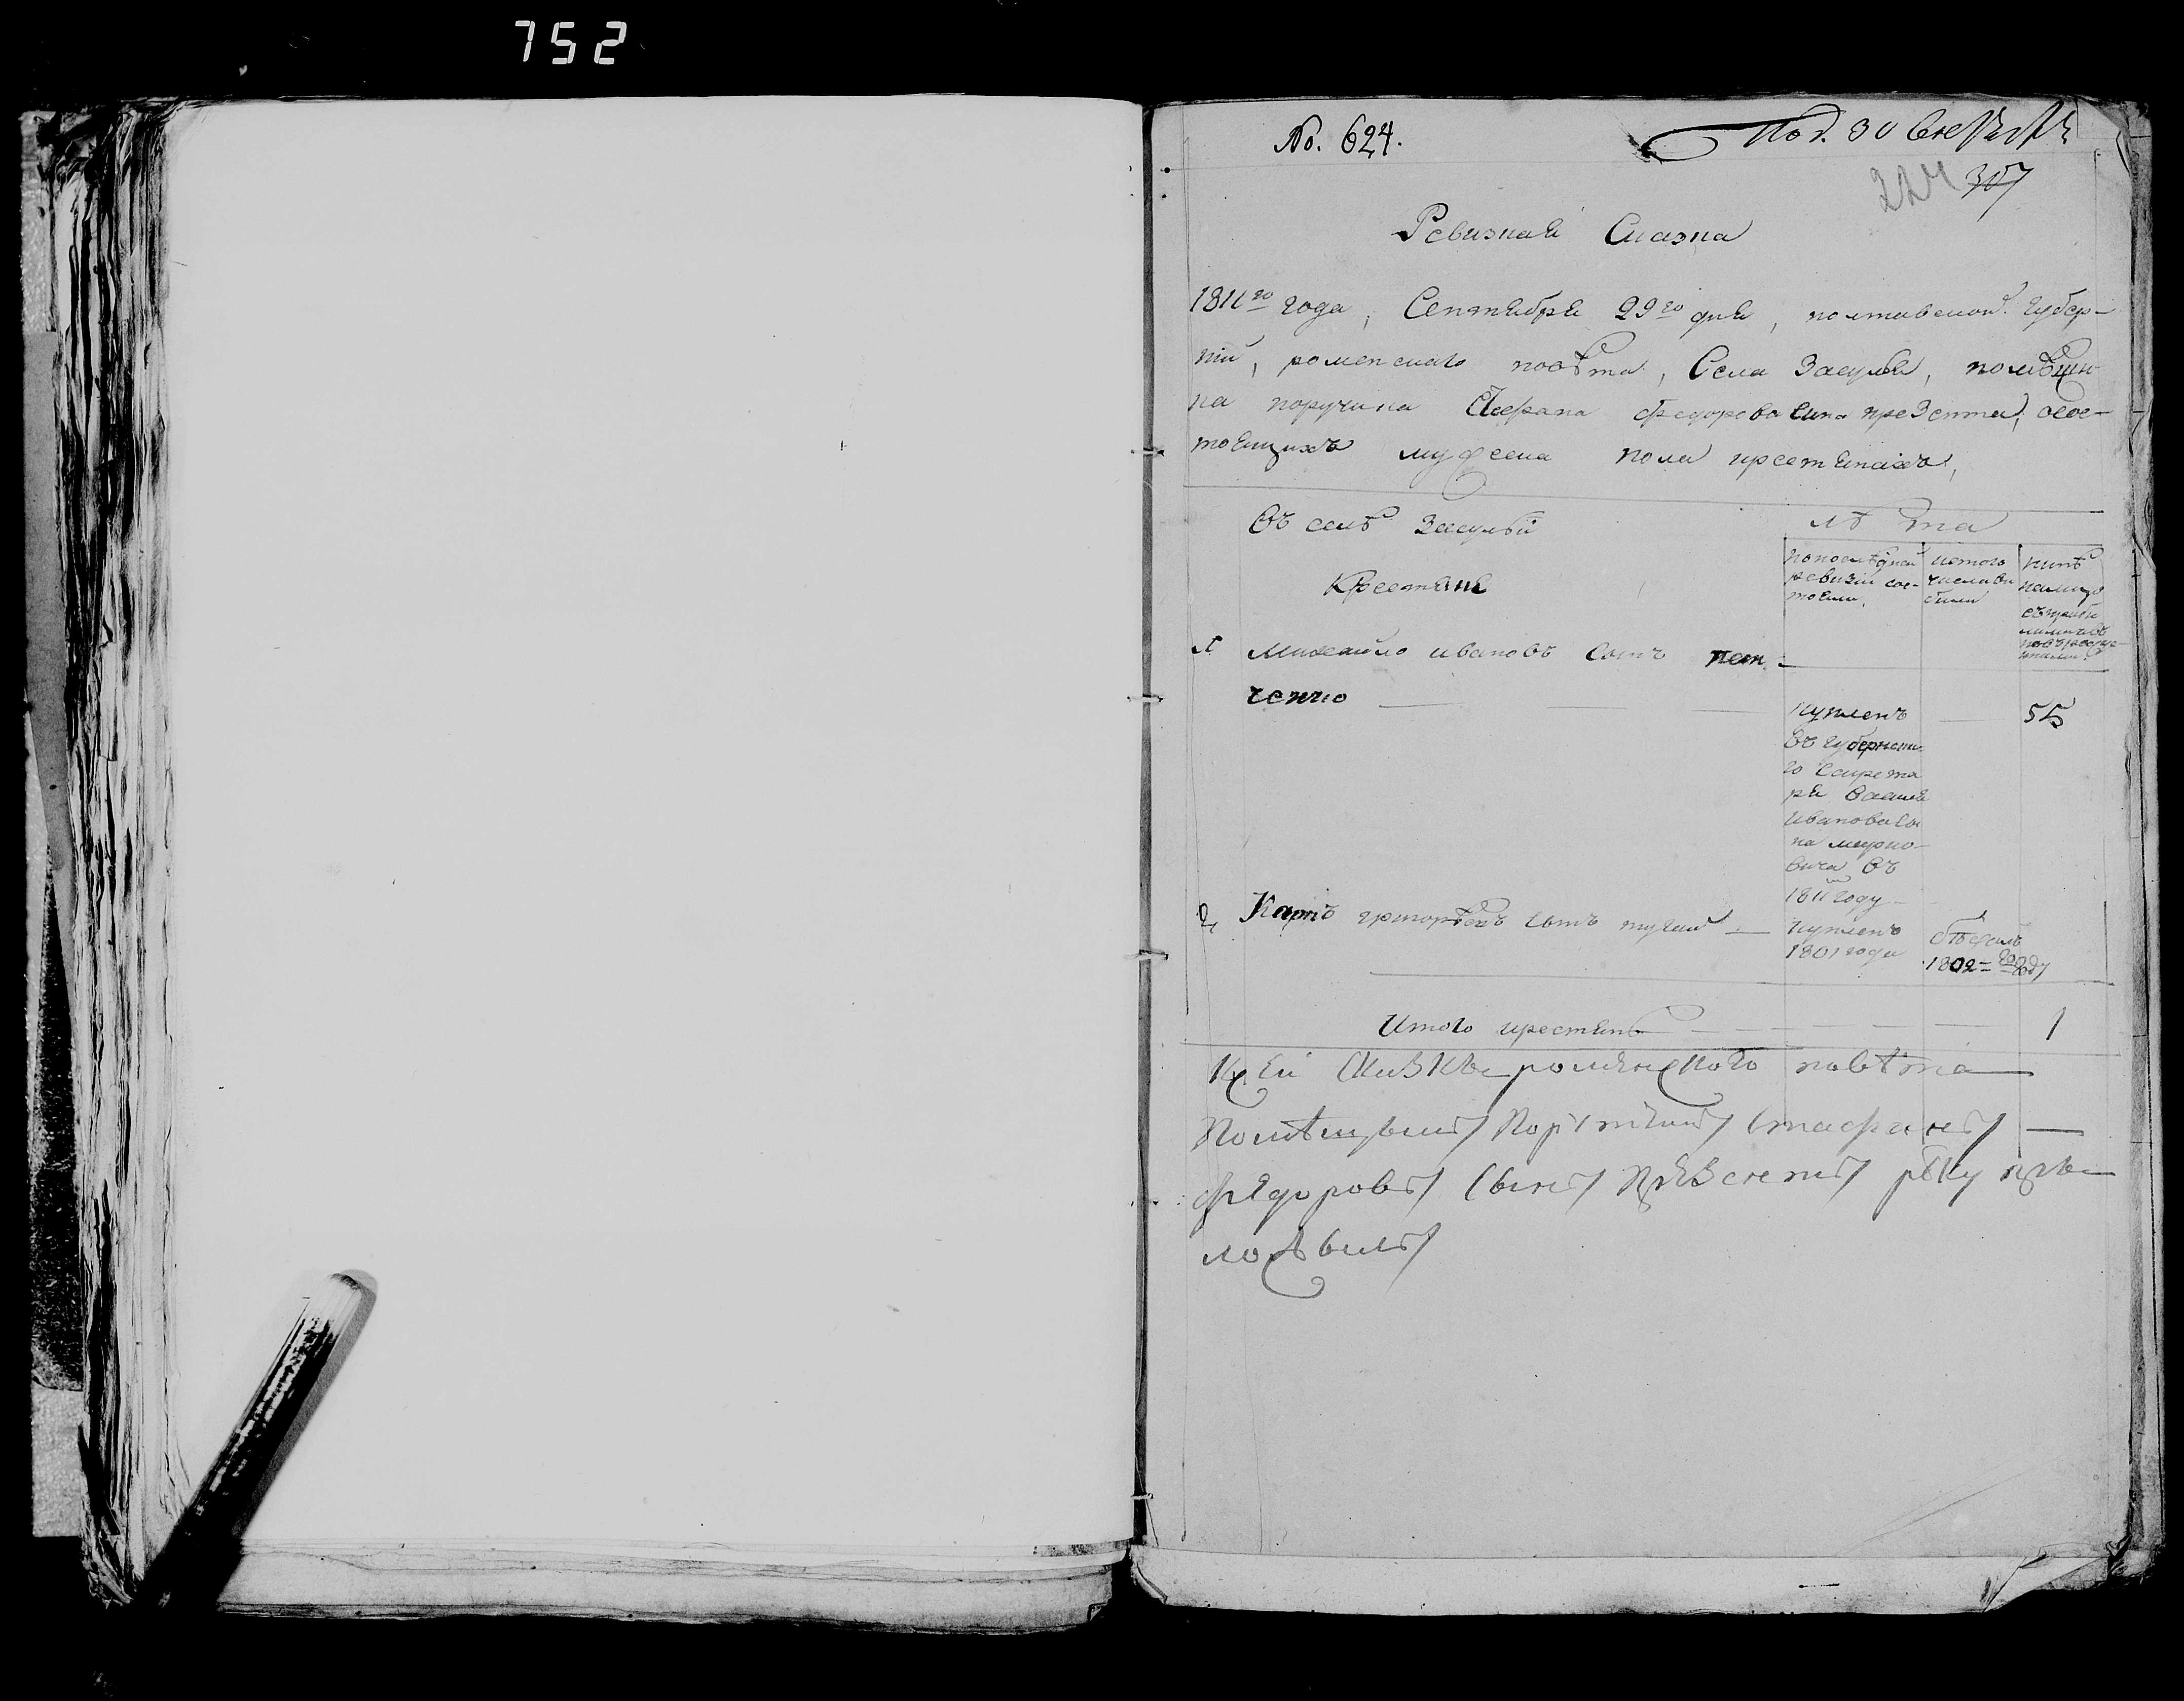 752
No. 624.
Под. 30 Сентября
224 307
Ревизная Сказка
1811го года, Сентября 29го дня, полтавской Губер-
нии, роменскаго повѣта, Села Засулья, помѣщи-
ка поручика Стефана Федорова Сина презента, осос-
тоящихъ мужеска пола крестьянахъ,
Въ селѣ Засульи
лѣта
Крестьяне
попоследней ревизіи сос-тояли,
истого числа вибили
нинѣ налицо
1 Михайло ивановъ Сынъ пет-
ченко
купленъ
55
въ губернска
го Секрета
ря Василя
Иванова Сы
на мирко-
вича въ
1811 году
2 григорьевъ Сынъ
купленъ
1801 года
бѣжалъ
1802 году
Итого крестьянъ 1
К сей Сказкѣ роменского повѣта
Помѣщикъ Порутчикъ Стефанъ
Федоровъ Сынъ Презентъ руку при
ложилъ